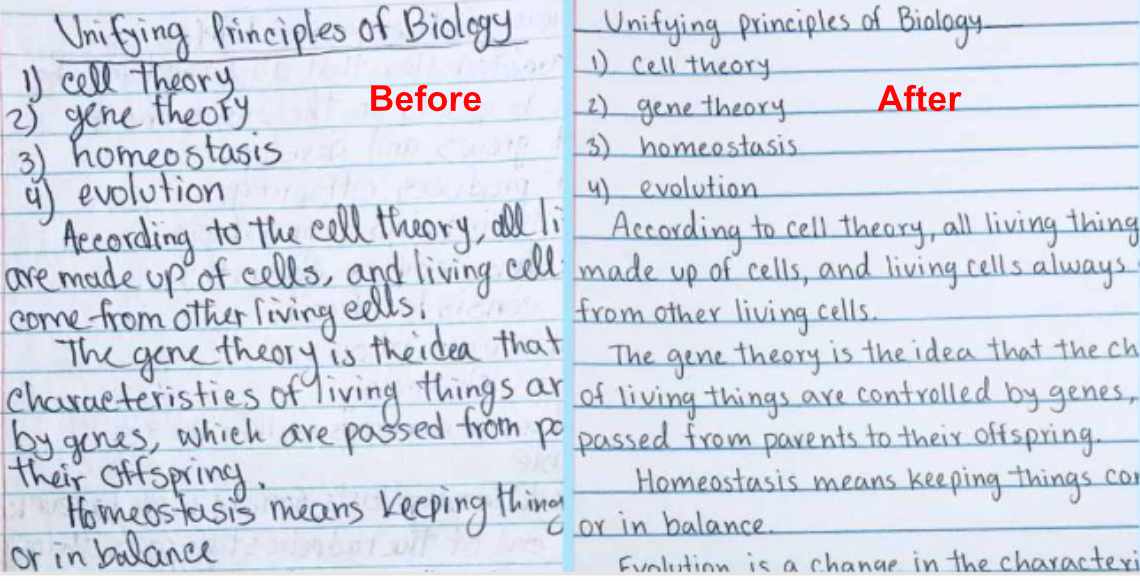 Unifying Principles of Biology
1) cell theory
Before
2) gene theory
3) homeostasis
4) evolution
According to the cell theory, all li
are made up of cells, and living cell
come from other living cells.
The gene theory is the idea that
characteristics of living things ar
by genes, which are passed from pa
their offspring.
Homeostasis means keeping thing
or in balance
Unifying principles of Biology
1) Cell theory
After
2) gene theory
3) homeostasis
4) evolution
According to cell theory, all living thing
made up of cells, and living cells always
from other living cells.
The gene theory is the idea that the ch
of living things are controlled by genes,
passed from parents to their offspring.
Homeostasis means keeping things con
or in balance.
Evolution is a change in the characteri